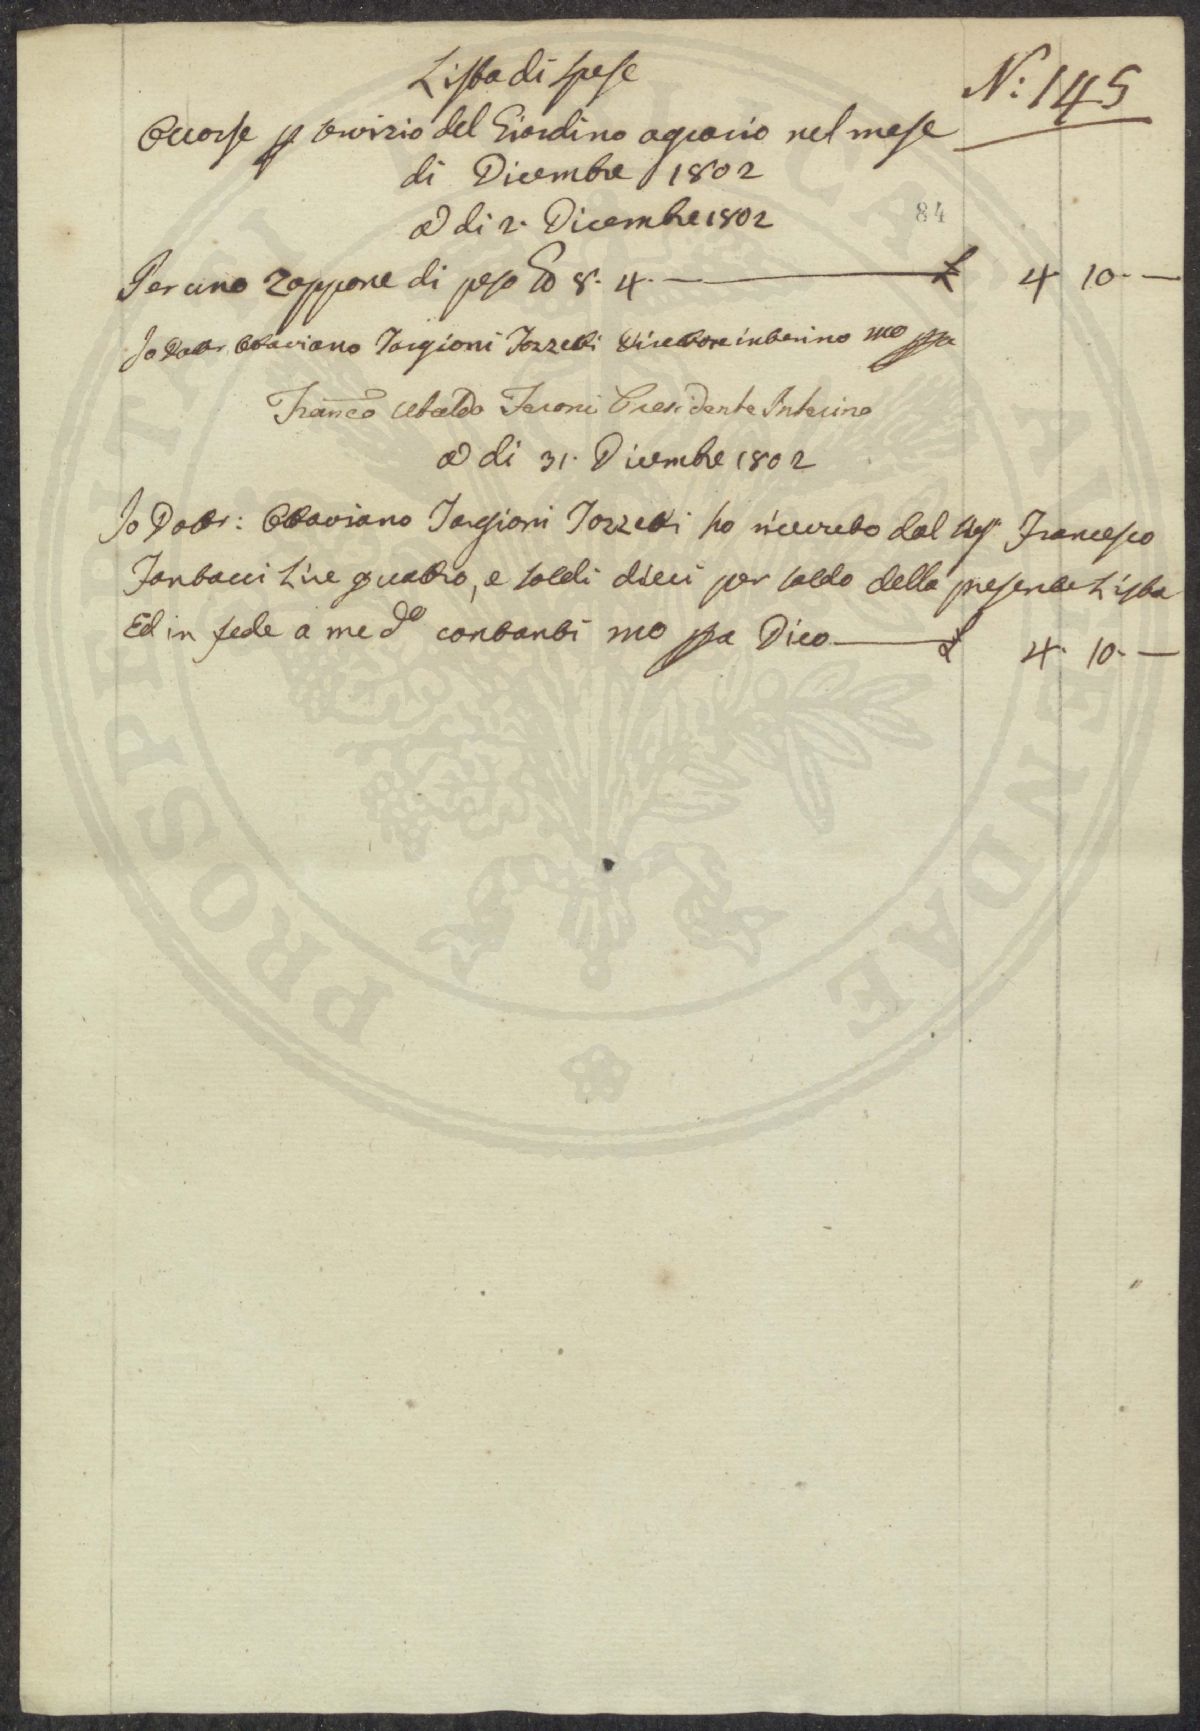 N: 145
Lista di Spese
Occorse p servizio del Giardino agrario nel mese
di Dicembre 1802
84
A di 2. Dicembre 1802
Per uno Zappone di peso 8. 4. — £ 4 10. —
Io Dottr. Ottaviano Targioni Tozzetti Direttore interino mo ppa
Franco Ubaldo Feroni Presidente Interino
A di 31. Dicembre 1802
Io Dottr: Ottaviano Targioni Tozzetti ho ricevuto dal Sigr Francesco
Tantacci Lire quattro, e soldi dieci per saldo della presente Lista
Ed in fede a me do contanti mo ppa Dico — £ 4. 10. —
PROSPERITATI PUBLICAE AUGENDAE